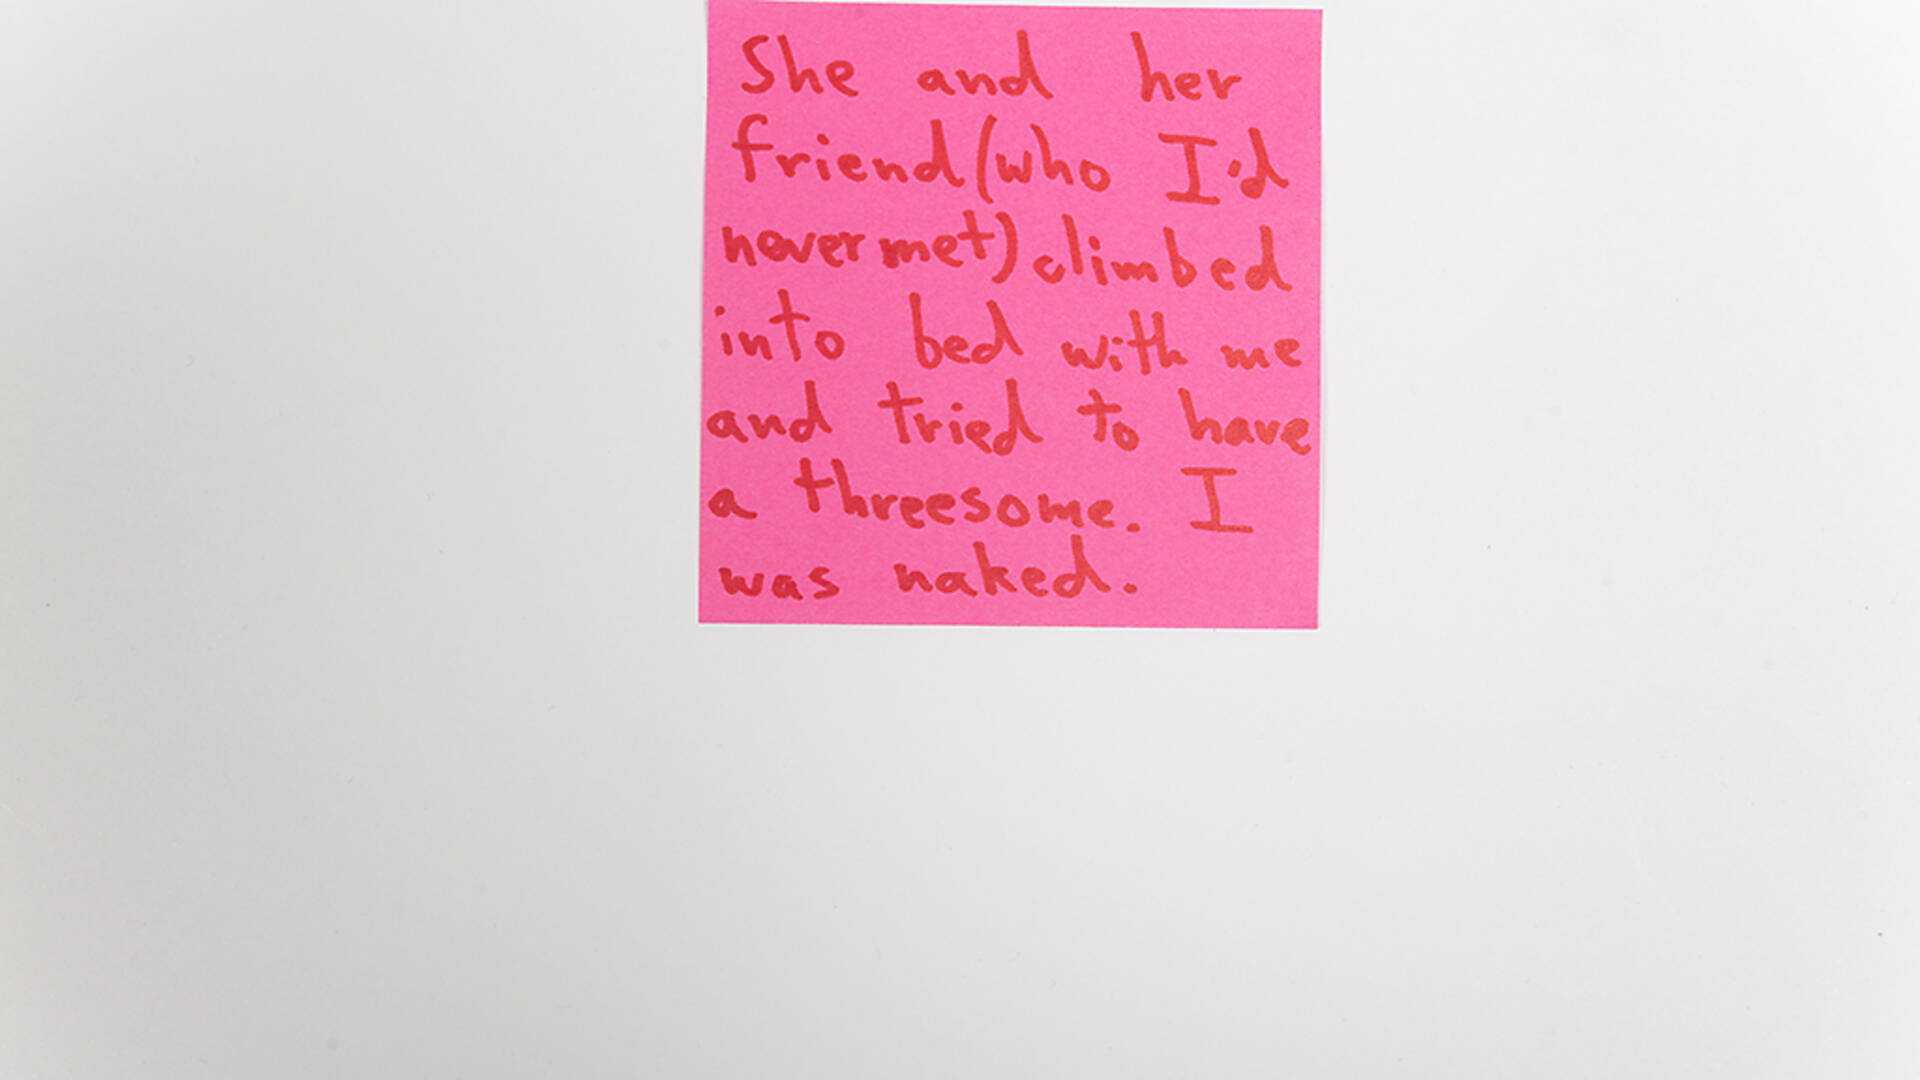 She and her
friend (who I'd
never met) climbed
into bed with me
and tried to have
a threesome. I
was naked.